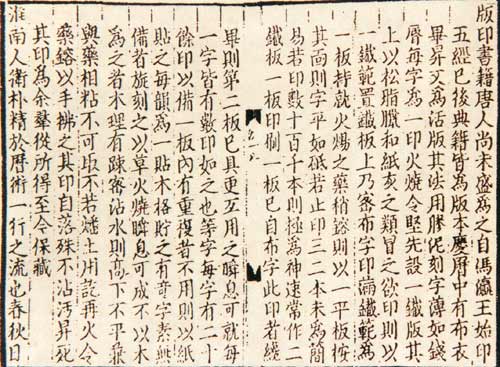 版印書籍唐人尚未盛為之自馮瀛王始印
五經已後典籍皆為版本慶曆中有布衣
畢昇又為活版其法用膠泥刻字薄如錢
脣每字為一印火燒令堅先設一鐵版其
上以松脂臘和紙灰之類冒之欲印則以
一鐵範置鐵板上乃密布字印滿鐵範為
一板持就火煬之藥稍鎔則以一平板按
其面則字平如砥若止印三二本未為簡
易若印數十百千本則極為神速常作二
鐵板一板印刷一板已自布字此印者纔
畢則第二板已具更互用之瞬息可就每
一字皆有數印如之也等字每字有二十
餘印以備一板內有重複者不用則以紙
貼之每韻為一貼木格貯之有奇字素無
備者旋刻之以草火燒瞬息可成不以木
為之者木理有疎密沾水則高下不平兼
與藥相粘不可取不若燔土用訖再火令
藥鎔以手拂之其印自落殊不沾汚昇死
其印為余群從所得至今保藏
淮南人衛朴精於曆術一行之流也春秋日